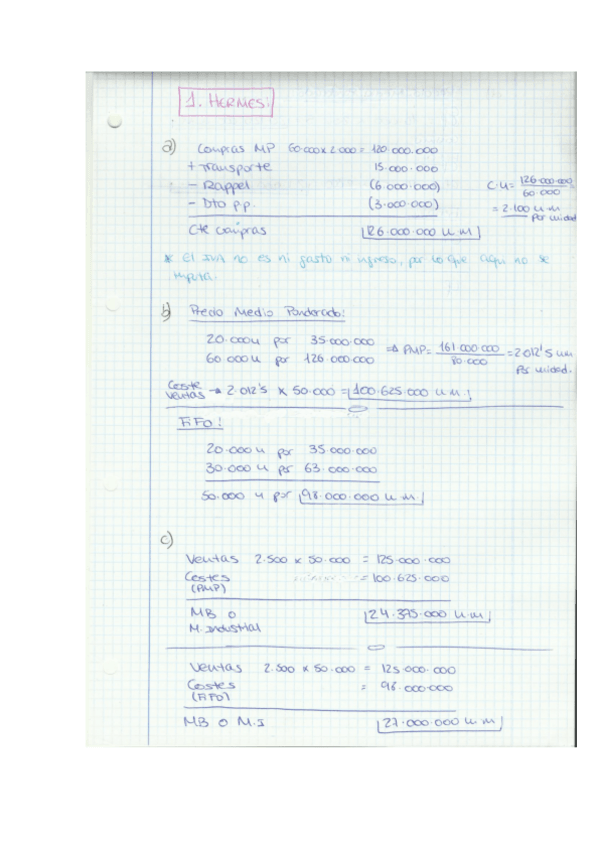 1. HERMES.
a) Compras MP 60.000 x 2.000 = 120.000.000
+ Transporte 15.000.000
- Rappel (6.000.000)
- Dto p.p. (3.000.000)
Cte compras 126.000.000 u.m.
C.U = 126.000.000 / 60.000 =
= 2.100 u.m. por unidad
* El IVA no es ni gasto ni ingreso, por lo que aquí no se imputa.
b) Precio Medio Ponderado:
20.000 u por 35.000.000
60.000 u por 126.000.000
⇒ PMP = 161.000.000 / 80.000 = 2.012'5 u.m. por unidad.
Coste Ventas → 2.012'5 x 50.000 = 100.625.000 u.m.
FIFO:
20.000 u por 35.000.000
30.000 u por 63.000.000
50.000 u por 98.000.000 u.m.
c)
Ventas 2.500 x 50.000 = 125.000.000
Costes = 100.625.000
(PMP)
MB o 24.375.000 u.m.
M. Industrial
Ventas 2.500 x 50.000 = 125.000.000
Costes = 98.000.000
(FIFO)
MB o M.I 27.000.000 u.m.